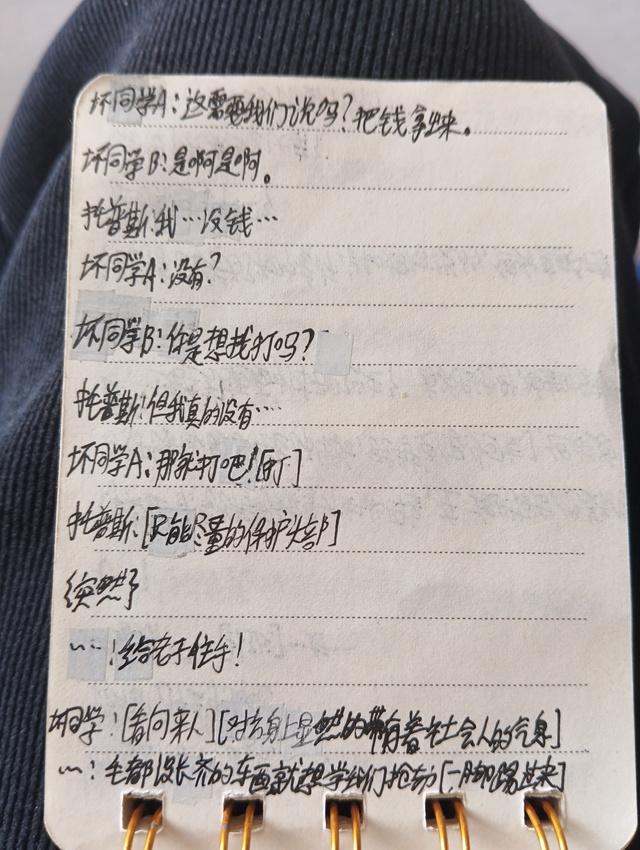 坏同学A：这需要我们说吗？把钱拿出来。
坏同学B：是啊是啊。
托普斯：我…没钱…
坏同学A：没有？
坏同学B：你是想找打吗？
托普斯：但我真的没有…
坏同学A：那就打吧！[打]
托普斯：[只能尽量的保护头部]
突然
…：给老子住手！
坏同学：[看向来人][对方身上显然的带有着社会人的气息]
…：毛都没长齐的东西就想学组们抢劫[一脚踢过来]